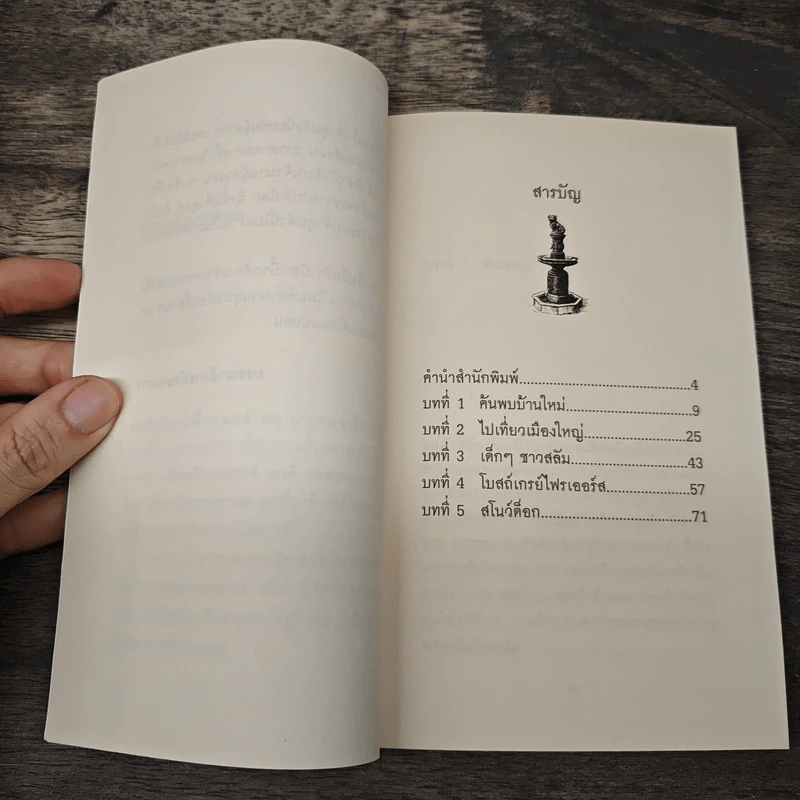 สารบัญ
คำนำสำนักพิมพ์.......................................4
บทที่ 1 ค้นพบบ้านใหม่.............................9
บทที่ 2 ไปเที่ยวเมืองใหญ่.......................25
บทที่ 3 เด็กๆ ชาวสลัม..........................43
บทที่ 4 โบสถ์เกรย์ไฟรเออร์ส.....................57
บทที่ 5 สโนว์ด็อก..................................71